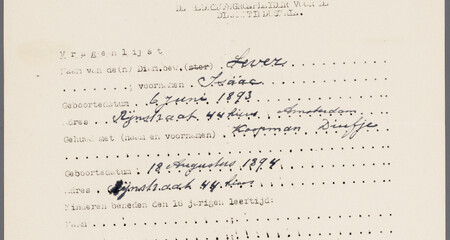 DIENSTEDUREE.
Vragenlijst
Naam van de(n) Dien.bew.(ster) Sever
; voornamen Isaac
Geboortedatum 6 Juni 1893
Adres Rijnstraat 44 huis Amsterdam
Gehuwd met (naam en voornamen) Koopman, Duifje
Geboortedatum 12 Augustus 1894
Adres Rijnstraat 44 huis
Kinderen beneden den 16 jarigen leeftijd:
Naam